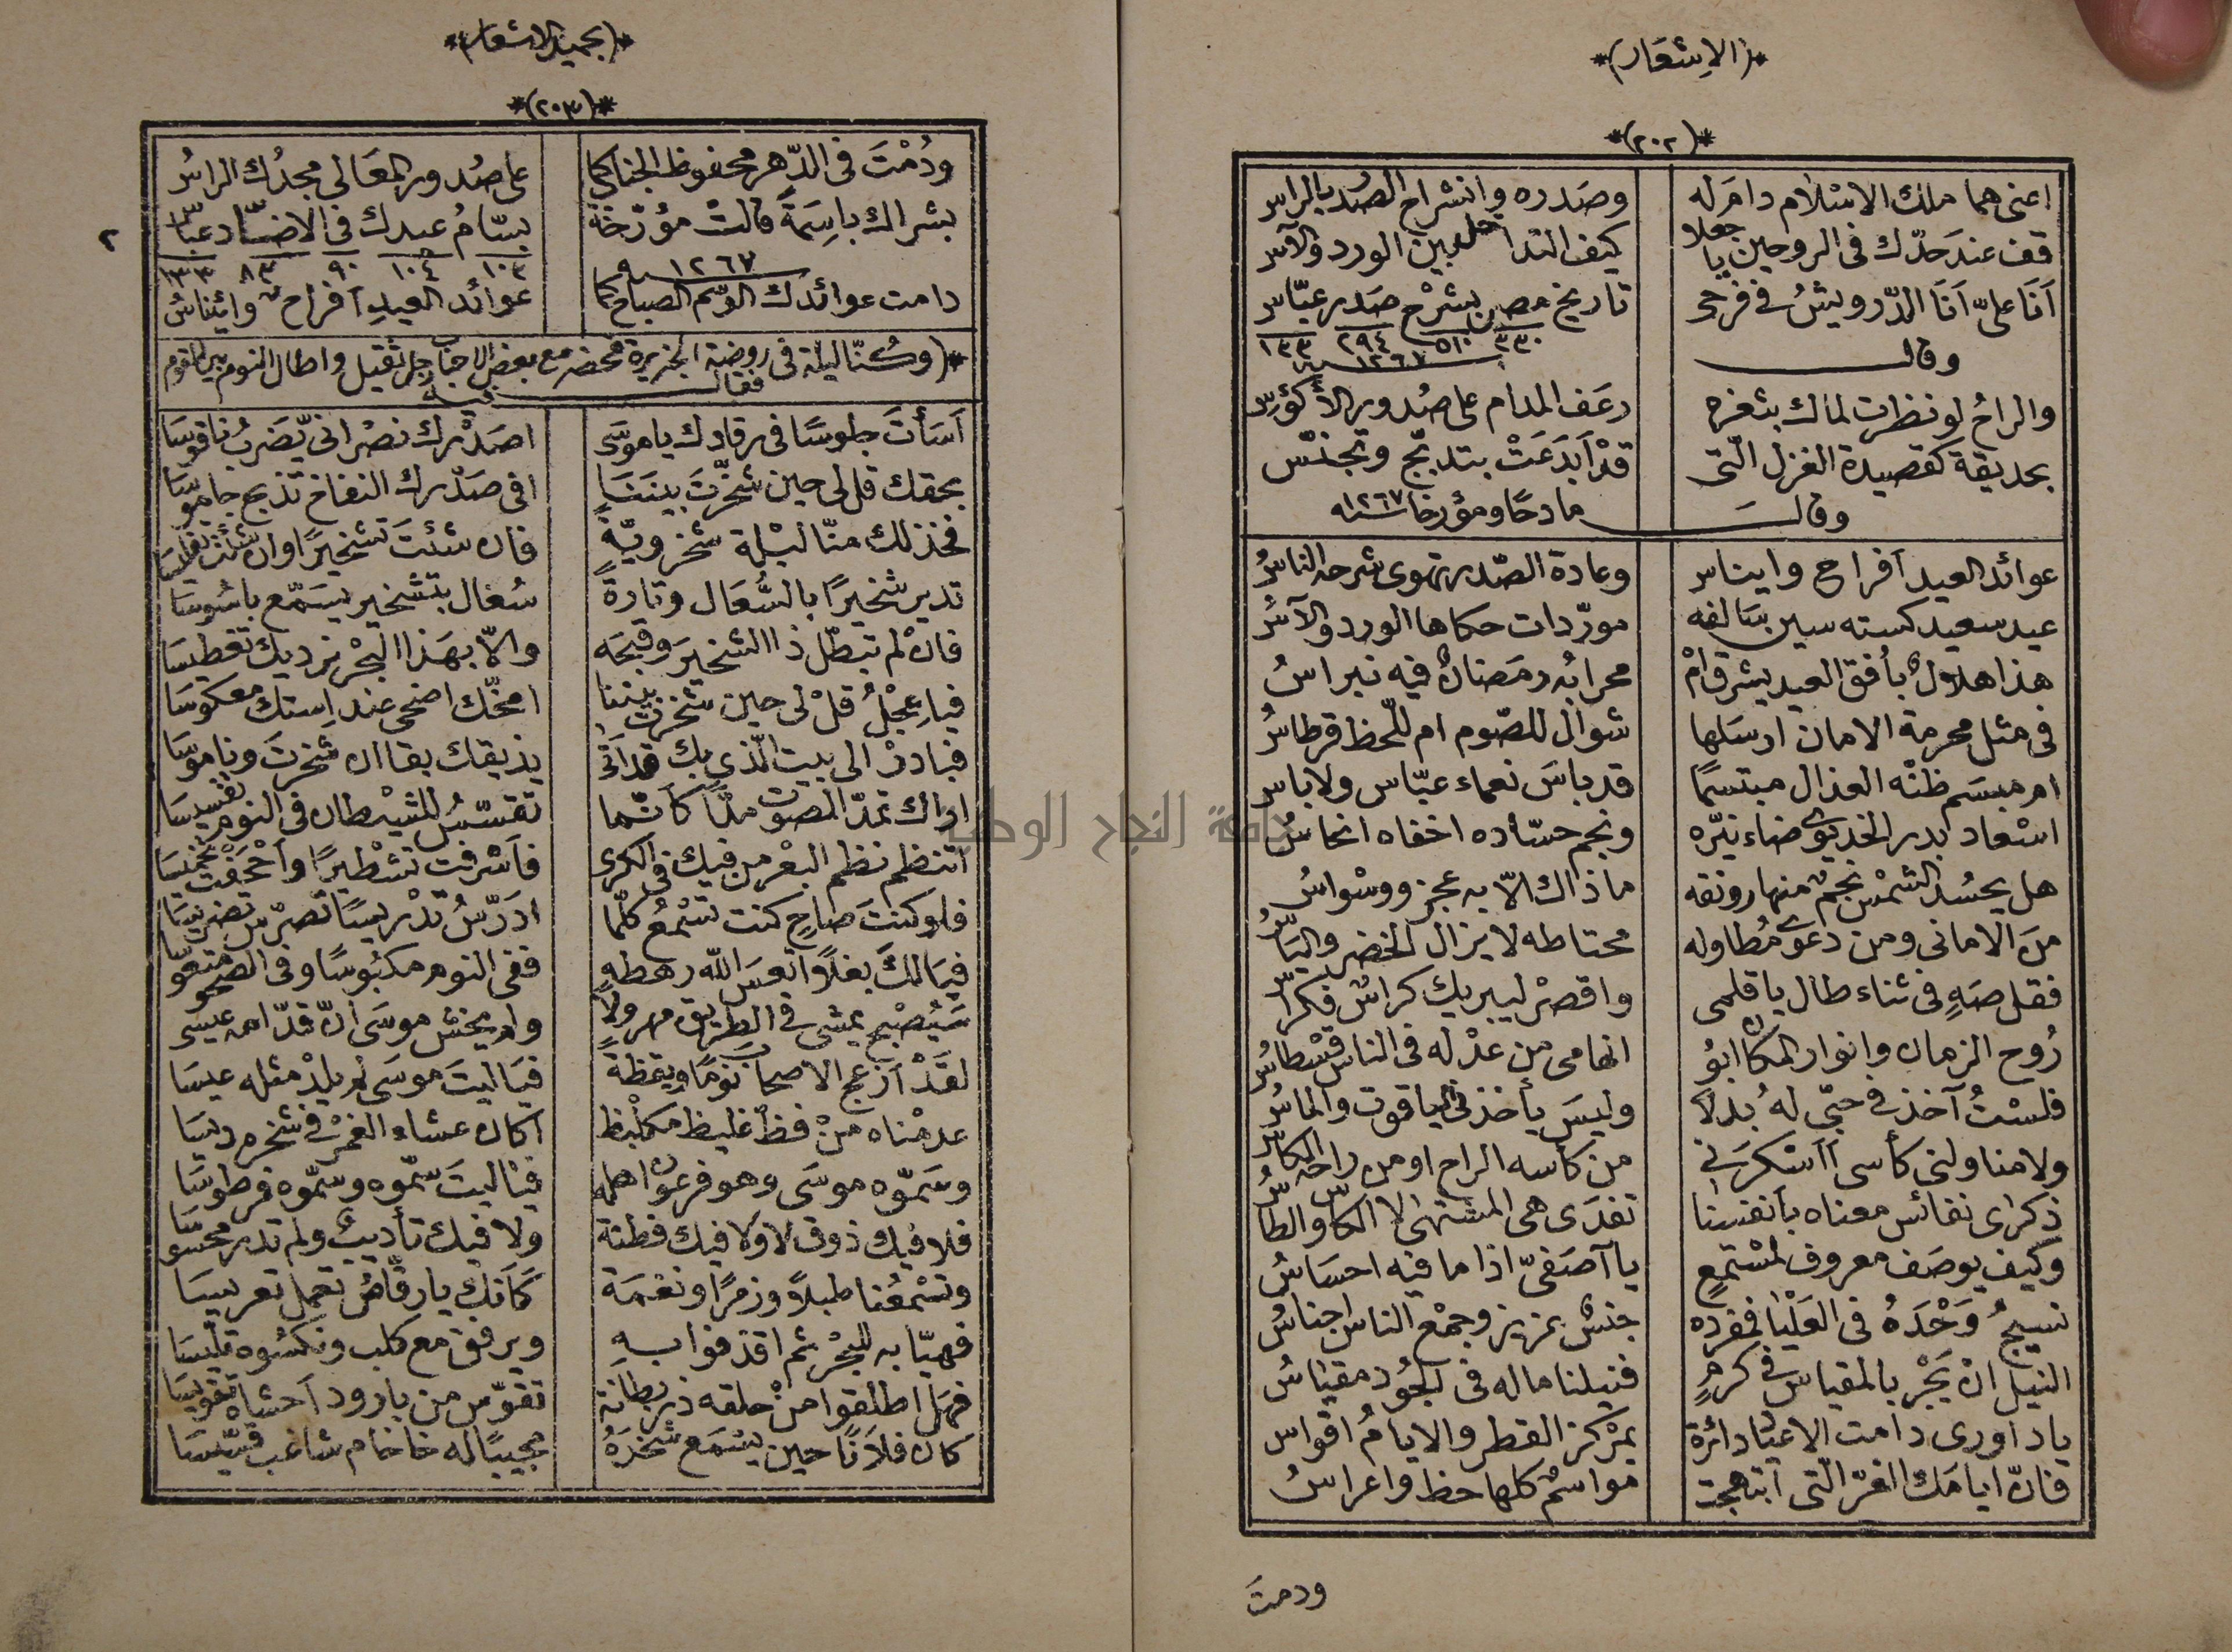 *(الاِشعَار)*
*(٢٠٢)*
اعنى هما ملك الاسْلام دامَ له وصَدره وانشراح الصُدر بالراس
قف عند حدّك فى الروحين يا جعلا كيف التدا بين الورد والآس
اَنَا علىّ اَنَا الدّرويشُ فى فرحى تاريخ مصر بشرْح صَدر عبّاس
٣٣٠ ٥١٠ ٢٩٤ ١٣٣
١٢٦٧
وقال
والراحُ لو نظرت لماك بثغره رعَف المدام على صُدور الأكؤس
بحديقة كقصيدة الغزل الّتى قدْ اَبدَعَتْ بتدبّج وتجنّس
وقال مادحًا ومؤرخا سنه ١٢٦٧
عوائد العيد اَفراح وايناس وعادة الصّدر تهوى شرحه الناسُ
عيد سعيد كسته سين سَالفه مورّدات حكاها الورد والآسُ
هذا هلالٌ بأُفق العيد يشرق امْ محرابُه رمَضانٌ فيه نبراسُ
فى مثل محرمة الامان ارسَلها شوال للصّوم ام للّحظ قرطاسُ
ام مبسَم ظنّه العذال مبتسمًا قد باسَ نعماء عبّاس ولا باس
اسْعاد بدر الخديوى ضاء نيّره ونجم حسّاده اخفاه انحاسُ
هل يحسُد الشمْس نجم منها رونقه ماذاك الّا به عجز ووسْواسُ
منَ الامانى ومن دعوى مُطاوله محتاطه لا يزال الخضر والياسُ
فقل صَهٍ فى ثناء طال يا قلمى واقصرْ ليبريك كراسٌ فكراسُ
رُوح الزمان وانوار المكان ابوُ الهامى من عدْله فى الناس قسْطاسُ
فلسْتُ آخذ فى حبّى لهُ بدلًا وليسَ يأخذ فى الياقوت والماسُ
ولا مناولنى كأسى اَاَسْكرَنى من كأسه الراح او من راحه الكاسُ
ذكراى نفائس معناه بأنفسنا تفدَى هى المشتهى لا الكاس والطاسُ
وكيف يوصَف معروف لمسْتمعٍ يا آصَفىّ اذا ما فيه احسَاسُ
نسيجُ وَحْدَهُ فى العَلْيا فمفرده جنسٌ عزيز وجمْع الناس اجناسُ
النيل انْ يَجْر بالمقياس فى كرمٍ فنيلنا ماله فى الجُود مقيَاسُ
يا داورى دامت الاعياد دائرة بمرْكز القطر والايامُ اقواس
فانّ ايامَك الغرّ الّتى ابتهجت مواسمٌ كلها حظ واعراسُ
ودمتَ
*(بحميد الاشعار)*
*(٢٠٣)*
٢
ودُمْتَ فى الدّهر محفوظ الجناب كما على صُدور المعَالى مجدُك الراسُ
بشراك باسِمَةً قالتْ مؤرّخةً بسّامُ عيدك فى الاضْـ عبّاسُ
١٢٦٧ ١٠٣ ١٠٤ ٩٠ ٨٣ ١٣٣
دامت عوائدك الوسم الصباح كما عوائد العيدِ اَفراحٌ وايْناسُ
*(وكُنّا ليلة فى روضة الجزيرة فحضر مع بعض الاحباب رجل ثقيل واطال النوم بين القوم
فقال فيه
اَسَأتَ جلوسًا فى رقادك يا موسَى اصَدْرك نصْرانى يّضَربُ ناقوسَا
بحقك قل لى حين شخّرتَ بينَنَا افى صَدْرك النفاخ تذبح جاموسَا
فخذ لك منّا ليْلة شخرويّةً فان شئتَ تشخيرًا وان شئتَ تفليسَا
تدير شخيرًا بالسُّعَال وتارةً سُعَال بتشخير يسَمّع باسُوسَا
فانْ لم تبطّل ذا الشخيرَ وقبحَه والّا بهَذا البحْر نرديك تغطيسَا
فيا عِجْلُ قلْ لى حين شخرت بيننا امخّك اضحى عند اِستك معكوسَا
فبادرْ الى بيت الّذى بك قد اَتى يذيقك بقا ان شخرتَ وناموسَا
اراك تمدّ الصوت ملّا كأنّما تقسّسُ للشيْطان فى النوم تقسيسَا
اَتنظم نظم البعْر من فيك فى الكرى فاَسْرفت تشْطيرًا واَجْحَفْت تخميْسَا
فلو كنتَ صَاحٍ كنت تسْمعُ كلّما ادَرّسُ تدْريسًا تضرّس تضريسَا
فيَا لكَ بغلًا اتعسَ الله رهطه ففى النوم مكبُوسًا وفى الصحو متعوسَا
سَيُصْبح يمشى فى الطريق مهرولًا ولم يخش موسَى انّ قدّامه عيسى
لقَدْ اَزعج الاصحاب نومًا ويقظةً فيَا ليتَ موسَى لم يلدْ مثله عيسَا
عدمْناه منْ فظّ غليظ مكلْبظ اكان عشاء الغمْر فى شخره ديسَا
وسَمّوه موسَى وهو فرعون اهله فيَا ليتَ سمّوه وسمّوه فرطوسَا
فلا فيك ذوق لا ولا فيك فطنة ولا فيك تأديبٌ ولم تدر محسوسَا
وتسْمعُنا طبلًا وزمرًا ونغمَة كَاَنك يا رقّاص تعمل تعريسَا
فهيّا به للبحْر ثم اقذفوا به ويرفق مع كلب ونكسُوه تلّيسَا
فهَل اطلقوا منْ حلقه ذر بطانة تقوّس من بارود اَحشاه تقويسَا
كان فلَانًا حين يسْمَع شخرَهُ مجيبًا له خاخام شاغب قسّيسَا
جامعة النجاح الوطنية